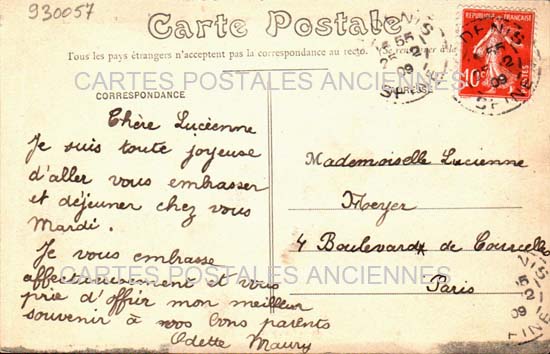 930057
Carte Postale
Tous les pays étrangers n'acceptent pas la correspondance au recto.
RÉPUBLIQUE FRANÇAISE
10c
DENIS
55
25 -2
09
SEINE
CARTES POSTALES ANCIENNES
CORRESPONDANCE
Chère Lucienne
Je suis toute joyeuse
d'aller vous embrasser
et déjeuner chez vous
Mardi.
Je vous embrasse
affectueusement et vous
prie d'offrir mon meilleur
souvenir à vos bons parents
Odette Maury
Mademoiselle Lucienne
Meyer
4 Boulevard de Courcelles
Paris
CARTES POSTALES ANCIENNES